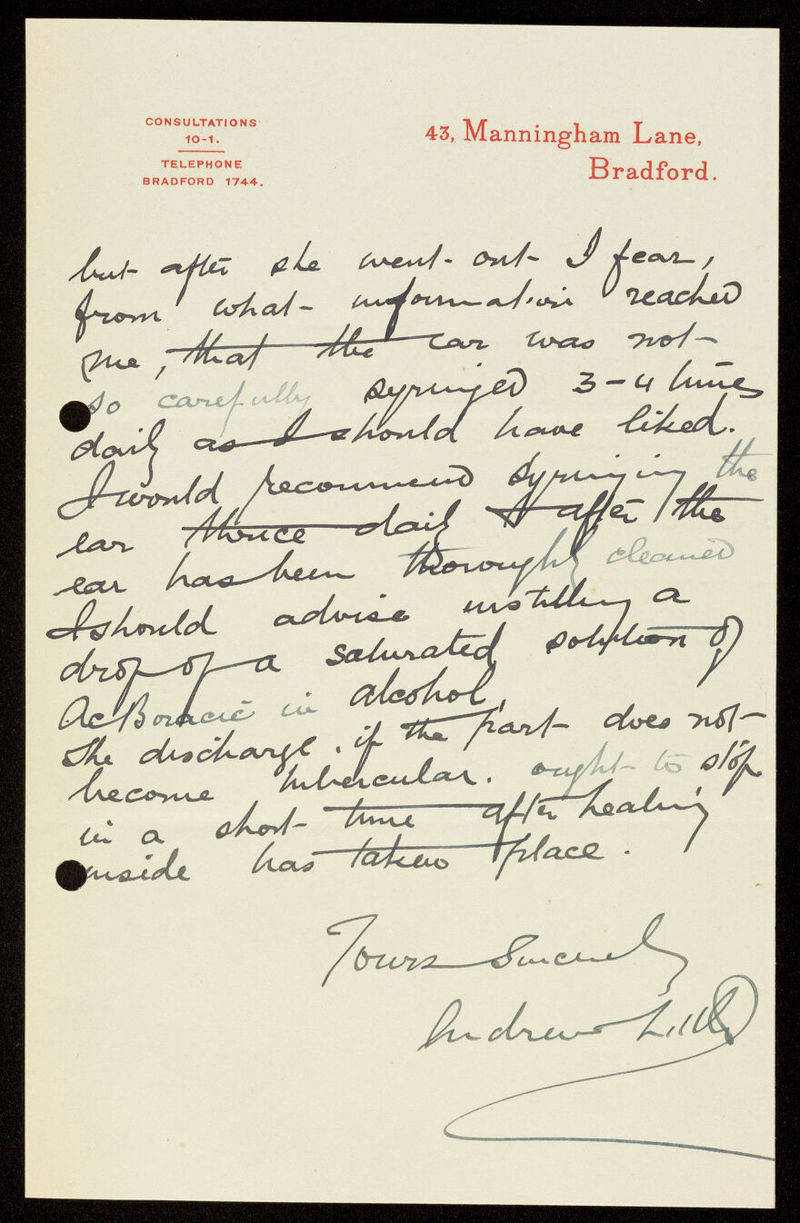 CONSULTATIONS
10-1.
TELEPHONE
BRADFORD 1744.
43, Manningham Lane,
Bradford.
but after she went out I fear,
from what information reached
me, that the ear was not
so carefully syringed 3-4 times
daily as I should have liked.
I would recommend syringing the
ear thrice daily & after the
ear has been thoroughly cleaned
I should advise instilling a
drop of a saturated solution of
Ac Boracic in alcohol,
The discharge, if the part does not
become tubercular. ought to stop
in a short time after healing
inside has taken place.
Yours Sincerely
Andrew Little